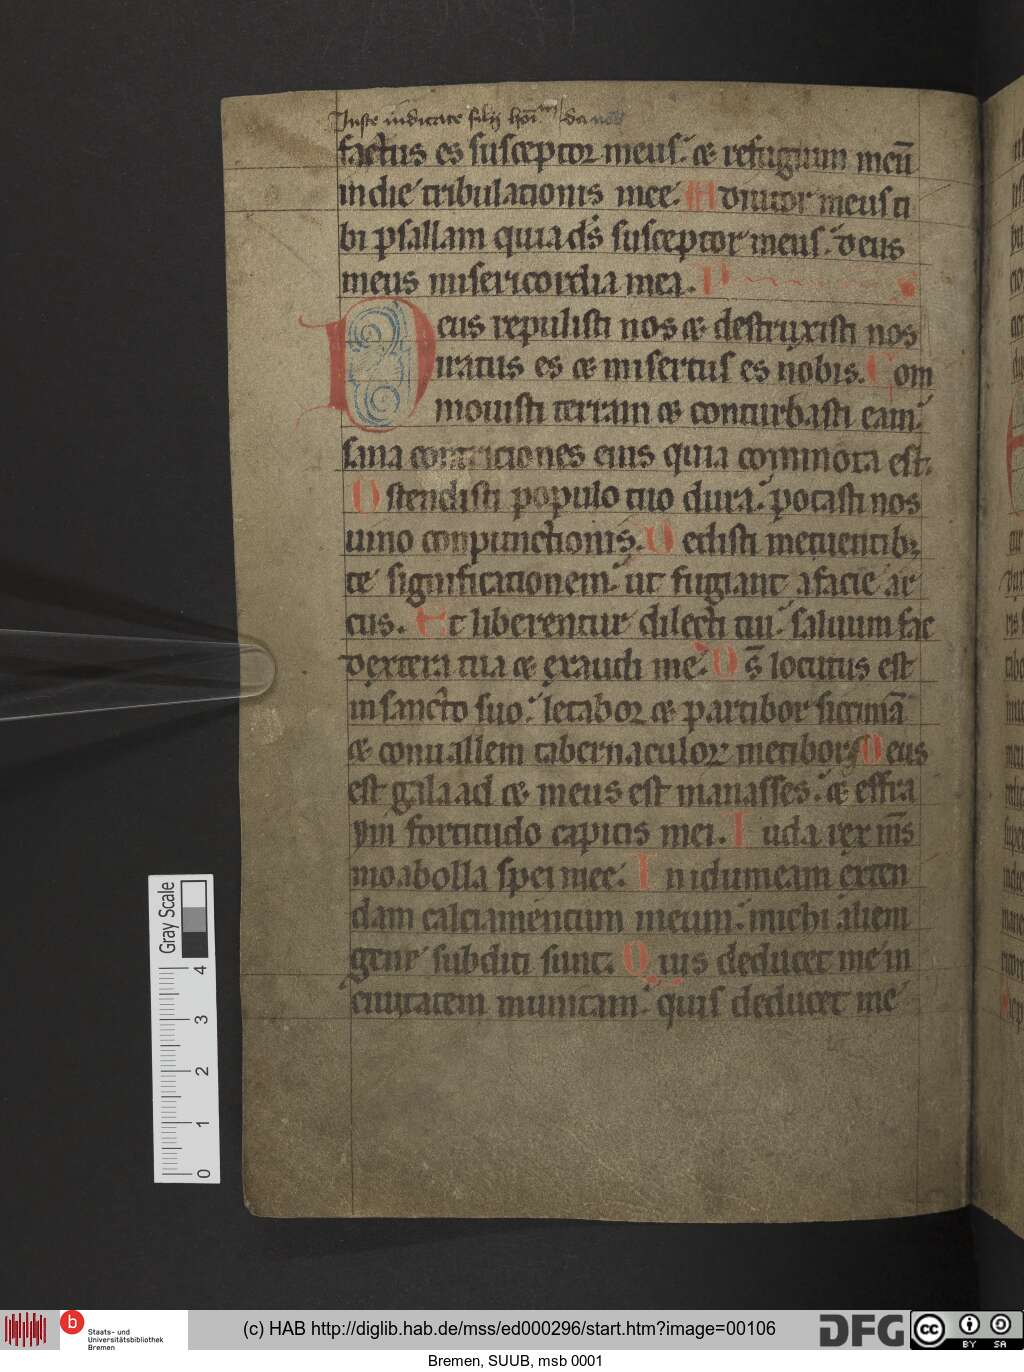 Juste iudicate filij hoīm da nob
factus es susceptor meus. ⁊ refugium meū
in die tribulationis mee. Adiutor meus ti
bi psallam quia ds̄ susceptor meus. deus
meus misericordia mea. P
Deus repulisti nos ⁊ destruxisti nos
iratus es ⁊ misertus es nobis. Com
mouisti terram ⁊ conturbasti eam.
sana contriciones eius quia commota est.
Ostendisti populo tuo dura. potasti nos
uino conpunctionis. Dedisti metuentibꝫ
te significationem. ut fugiant a facie ar
cus. Et liberentur dilecti tui. saluum fac
dextera tua ⁊ exaudi me. Ds̄ locutus est
in sancto suo. letabor ⁊ partibor siccimā
⁊ conuallem tabernaculoꝝ metibor. Meus
est galaad ⁊ meus est manasses. ⁊ effra
ym fortitudo capitis mei. Iuda rex m̄s
moab olla spei mee. In idumeam exten
dam calciamentum meum. michi aliem
gene subditi sunt. Quis deducet me in
ciuitatem munitam. quis deducet me
Gray Scale
4
3
2
1
0
b Staats- und
Universitätsbibliothek
Bremen
(c) HAB http://diglib.hab.de/mss/ed000296/start.htm?image=00106
DFG
cc BY SA
Bremen, SUUB, msb 0001